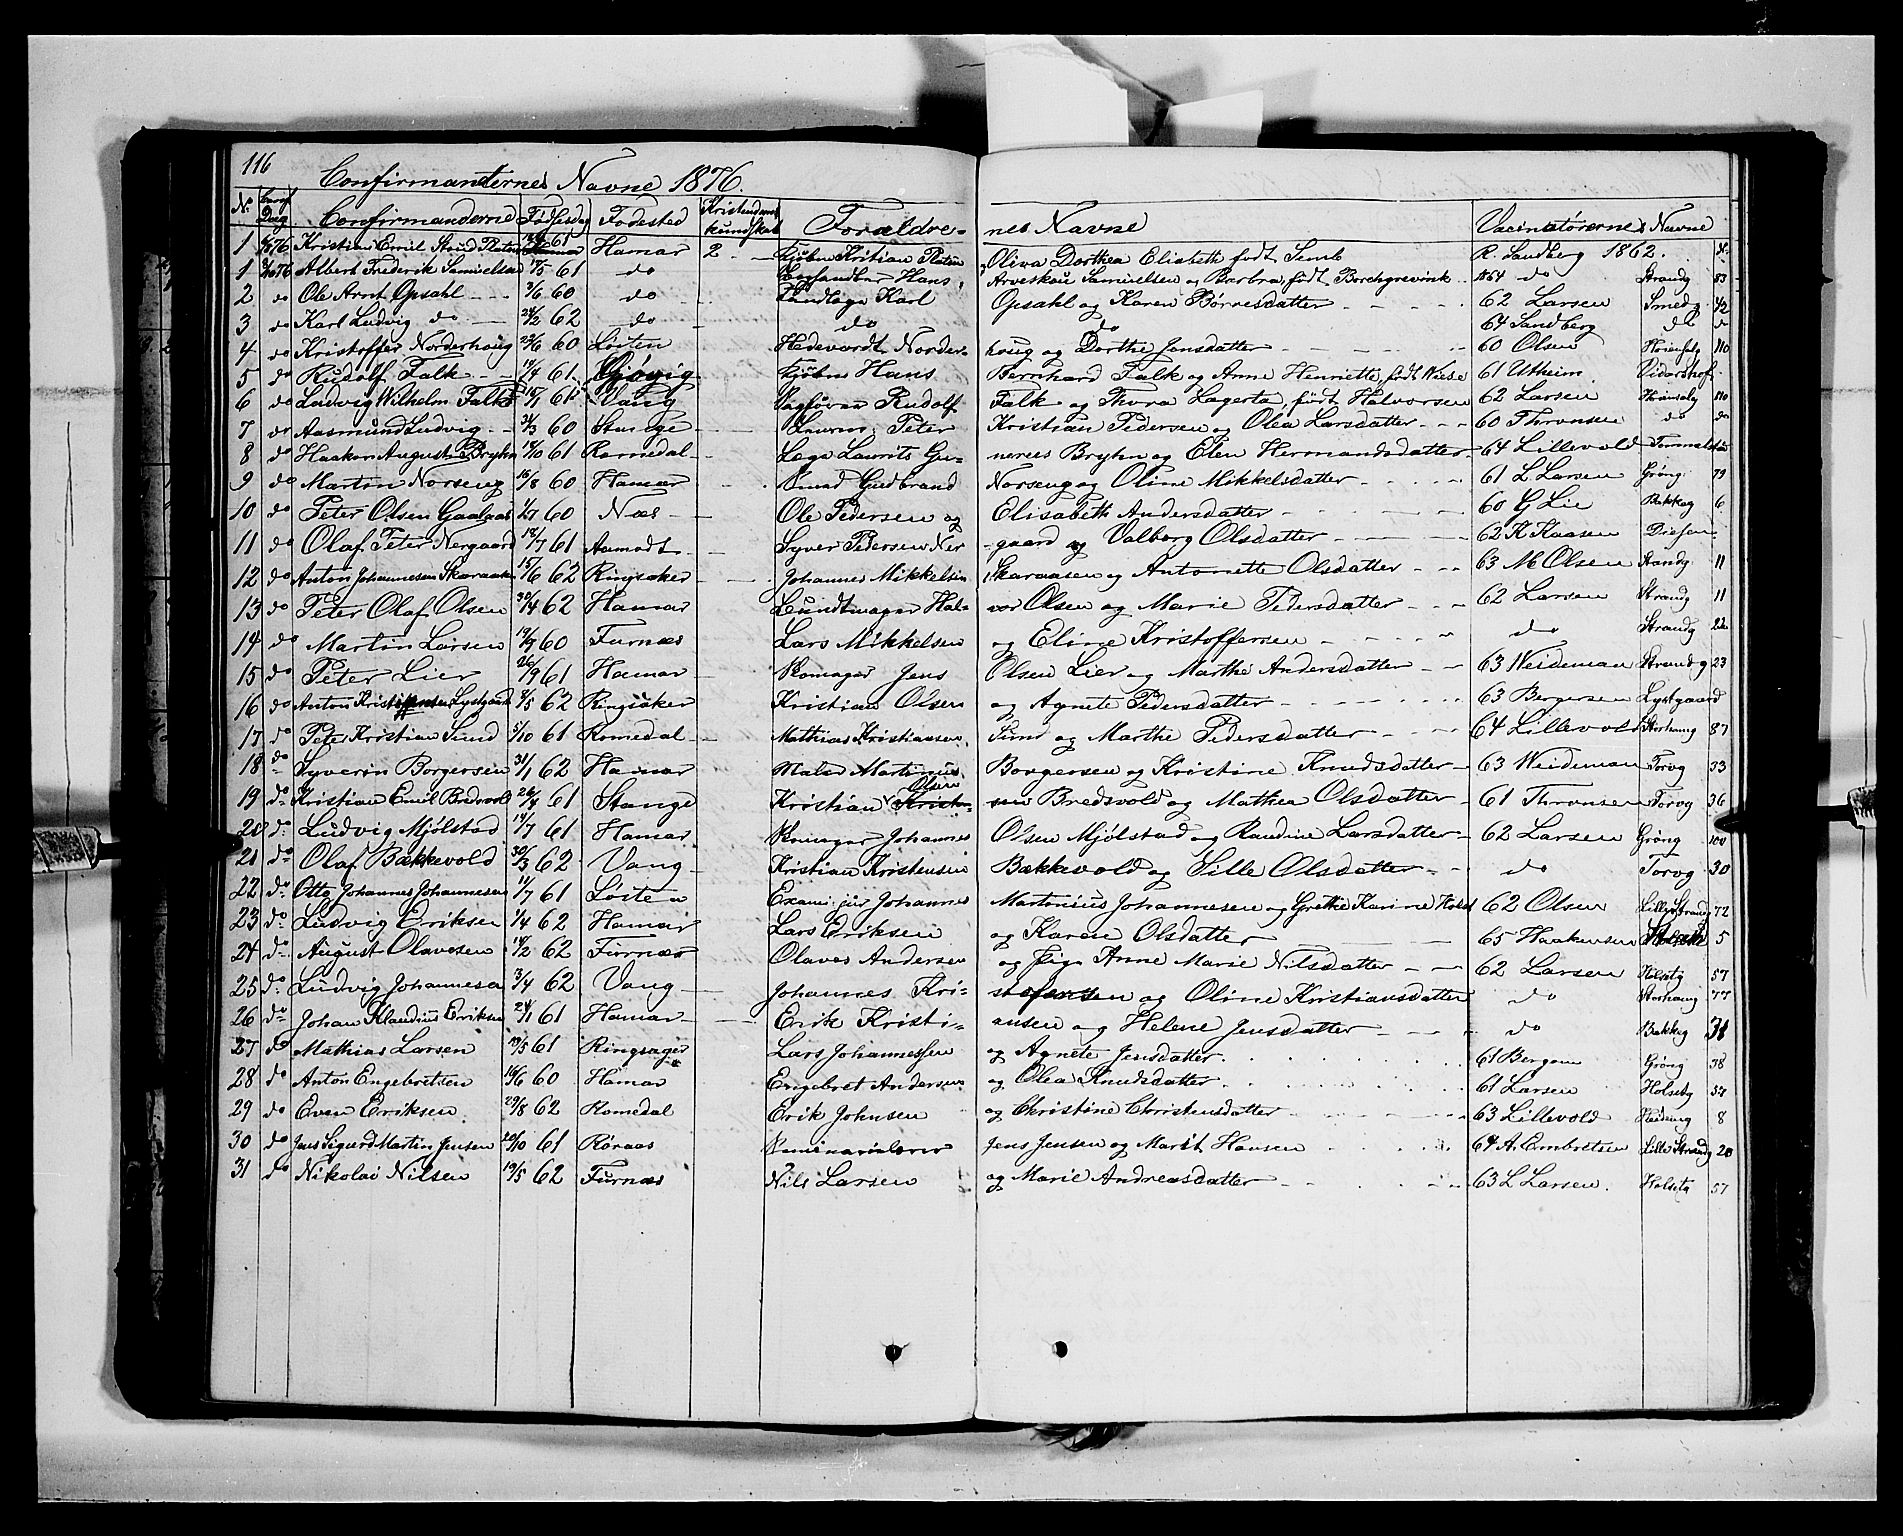 116
Confirmanternes Navne 1876.
No Conf Dag Confirmanderne Fødselsdag Fødested Kristendoms kundskab Forældre- nes Navne Vacinatørernes Navne
1 Kristian Emil Hamar 2 Kjøbm Kristian Platou Oliva Dorthea Elisabeth født Semb R. Sandberg 1862. N.
1 Albert Frederik Samuelsen 17/5 61 do Hans Arveskou Samuelsen og Barbra, født Borchgrevink 1864 do Strandg 83
2 do Ole Arnt Opsahl 3/6 60 do Karl Opsahl og Karen Børresdatter 62 Larsen Smedg 42
3 do Karl Ludvig do 24/2 62 do do do 64 Sandberg do do
4 do Kristoffer Norderhoug 23/6 60 Løiten Hedevardt Norder- houg og Dorthe Jensdatter 60 Olsen 110
5 do Rudolf Falk 17/4 61 Gjøvig Kjøbm Hans Bernhard Falk og Anne Henriette, født Wiese 61 Utheim Vidarshof
6 do Ludvig Wilhelm Falk 15/7 61 Vang Sagfører Rudolf Falk og Thora Lagerta, født Halvorsen 62 Larsen 110
7 do Aasmund Ludvig 31/3 60 Stange Peter Kristian Pedersen og Olea Larsdatter 60 Thronsen do do
8 do Haakon August Bryhn 18/10 61 Romedal Læge Laurits Gu- nereus Bryhn og Elen Hermandsdatter 64 Lillevold
9 do Martin Norseng 10/8 60 Hamar Smed Gudbrand Norseng og Oline Mikkelsdatter 61 L Larsen Grøng 79
10 do Peter Olsen Gaalaas 4/7 60 Næs Ole Pedersen og Elisabeth Andersdatter 60 G Lie Bakkeg 6
11 do Olaf Peter Nergaard 12/7 61 Aamodt Syver Pedersen Ner -gaard og Valborg Olsdatter 62 K Kaasen
12 do Anton Johannesen Skaraasen 15/6 62 Ringsaker Johannes Mikkelsen Skaraasen og Antonette Olsdatter 63 M Olsen Standg 11
13 do Peter Olaf Olsen 30/4 62 Hamar Hal- vor Olsen og Marie Pedersdatter 62 Larsen Strandg 11
14 do Martin Larsen 19/9 60 Furnæs Lars Mikkelsen og Eline Kristoffersen do Strandg 22
15 do Peter Lier 26/9 61 Hamar Skomager Jens Olsen Lier og Marthe Andersdatter 63 Weideman Strandg 23
16 do Anton Kristiansen Lystgaard 8/5 62 Ringsaker Kristian Olsen og Agnete Pedersdatter 63 Bergersen Lystgaard
17 do Peter Kristian Sund 5/10 61 Romedal Mathias Kristiansen Sund og Marthe Pedersdatter 64 Lillevold Storhamg 87
18 do Syverin Borgersen 31/1 62 Hamar Maler Martinus Borgersen og Kristine Knudsdatter 63 Weideman Torvg 33
19 do Kristian Emil Bredvold 26/4 61 Stange Kristian Olsen Bredsvold og Mathea Olsdatter 61 Thronsen Torvg 36
20 do Ludvig Mjølstad 14/7 61 Hamar Skomager Johannes Olsen Mjølstad og Randine Larsdatter 62 Larsen Grøng 100
21 do Olaf Bækkevold 30/3 62 Vang Kristian Kristensen Bækkevold og Sille Olsdatter do Torvg 30
22 do Otto Johannes Johannesen 11/7 61 Løiten Exami jur Johannes Martinius Johannesen og Grethe Karine Holst 62 Olsen Lille Strandg 72
23 do Ludvig Eriksen 1/4 62 Hamar Lars Eriksen og Karen Olsdatter 65 Haakensen 5
24 do August Olavesen 14/2 62 Furnæs Olaves Andersen og Pige Anne Marie Nilsdatter 62 Larsen Holsetg 57
25 do Ludvig Johannesen 3/4 62 Vang Johannes Kri- stofensen og Oline Kristiansdatter do Storhamg 77
26 do Johan Klaudius Eriksen 24/1 61 Hamar Erik Kristi- ansen og Helene Jensdatter do Bakkeg 31
27 do Mathias Larsen 19/5 61 Ringsager Lars Johannessen og Agnete Jensdatter 61 Bergem Grøng 38
28 do Anton Engebretsen 16/6 60 Hamar Engebret Andersen og Olea Knudsdatter 61 Larsen Holsetg 57
29 do Even Eriksen 29/8 62 Romedal Erik Johnsen og Christine Christensdatter 63 Lillevold 8
30 do Jens Sigurd Martin Jensen 20/10 61 Røraas Seminarielærer Jens Jensen og Marit Hansen 64 A. Embretsen Lille Strandg 20
31 do Nikolai Nilsen 19/5 62 Furnæs Nils Larsen og Marie Andreasdatter 63 L Larsen Holsetg 57